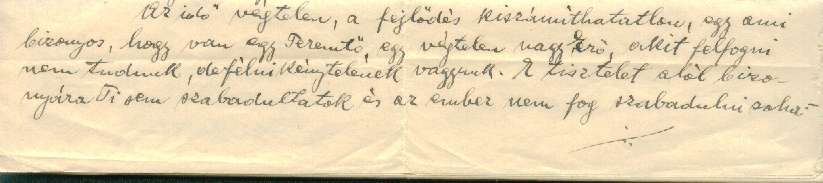 Az idő végtelen, a fejlődés kiszámíthatatlan, egy ami
bizonyos, hogy van egy Teremtő, egy végtelen nagy Erő, akit felfogni
nem tudunk, de félni kénytelenek vagyunk. E tisztelet alól bizo-
nyára Ti sem szabadultatok és az ember nem fog szabadulni soha-